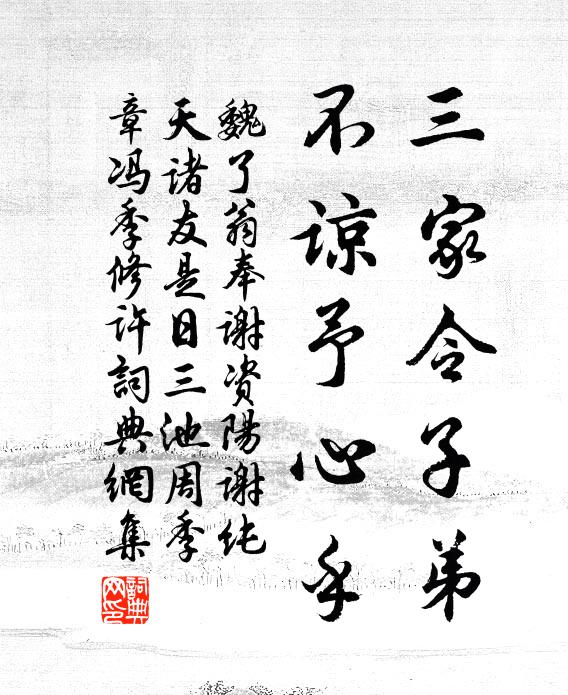 三家令子弟
不谅予心乎
魏了翁奉谢资陽谢纯
天诸友是日三池周季
章冯季修许詞典網集
詞典